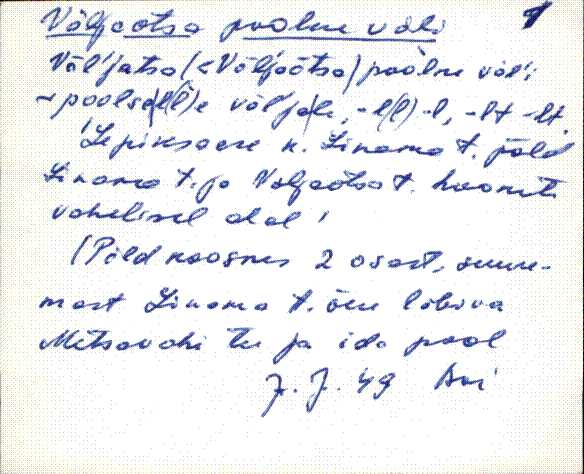 Väljaotsa poolne väli 1
Väl'jatsa (< Väl'jaotsa) poolne väl'i
~ poolse(l(l)e väl'jale, -l(l) -l, -lt -lt.
'Lepiksaare k. Linama t. põld
Linama t. ja Väljaotsa t. hoonete
vahelisel alal'
(Põld koosnes 2 osast, suure-
mast Linama t. õue läbiva
Metsavahi tee ja ida pool
7. J. 49